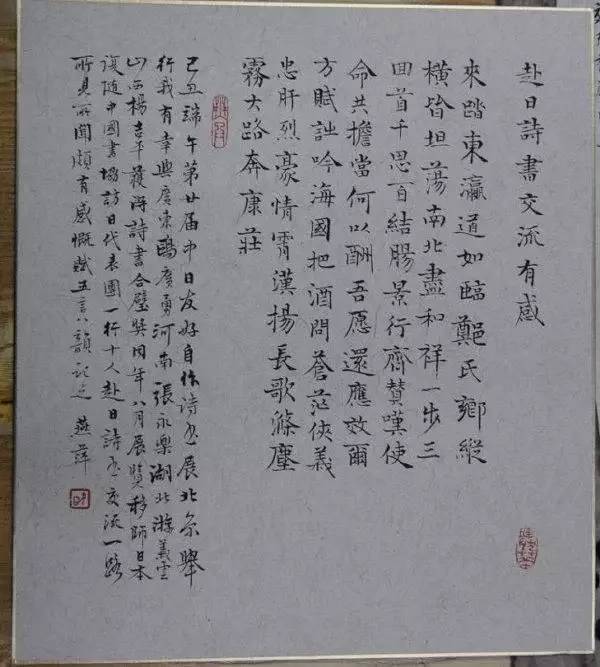 赴日詩書交流有感
來踏東瀛道如臨鄭氏鄉縱
橫皆坦蕩南北盡和祥一步三
回首千思百結腸景行齊贊嘆使
命共擔當何以酬吾愿還應效爾
方賦詩吟海國把酒問蒼茫俠義
忠肝烈豪情霄漢揚長歌滌塵
霧大路奔康莊
己丑端午第廿届中日友好自作诗书展北京舉
行我有幸與廣東鷗廣勇河南張永樂湖北游義雲
山西楊吉平獲得詩書合璧獎同年八月展覽移師日本
復隨中國書協訪日代表團一行十人赴日詩书交流一路
所見所聞頗有感慨賦五言八韻記之 燕萍